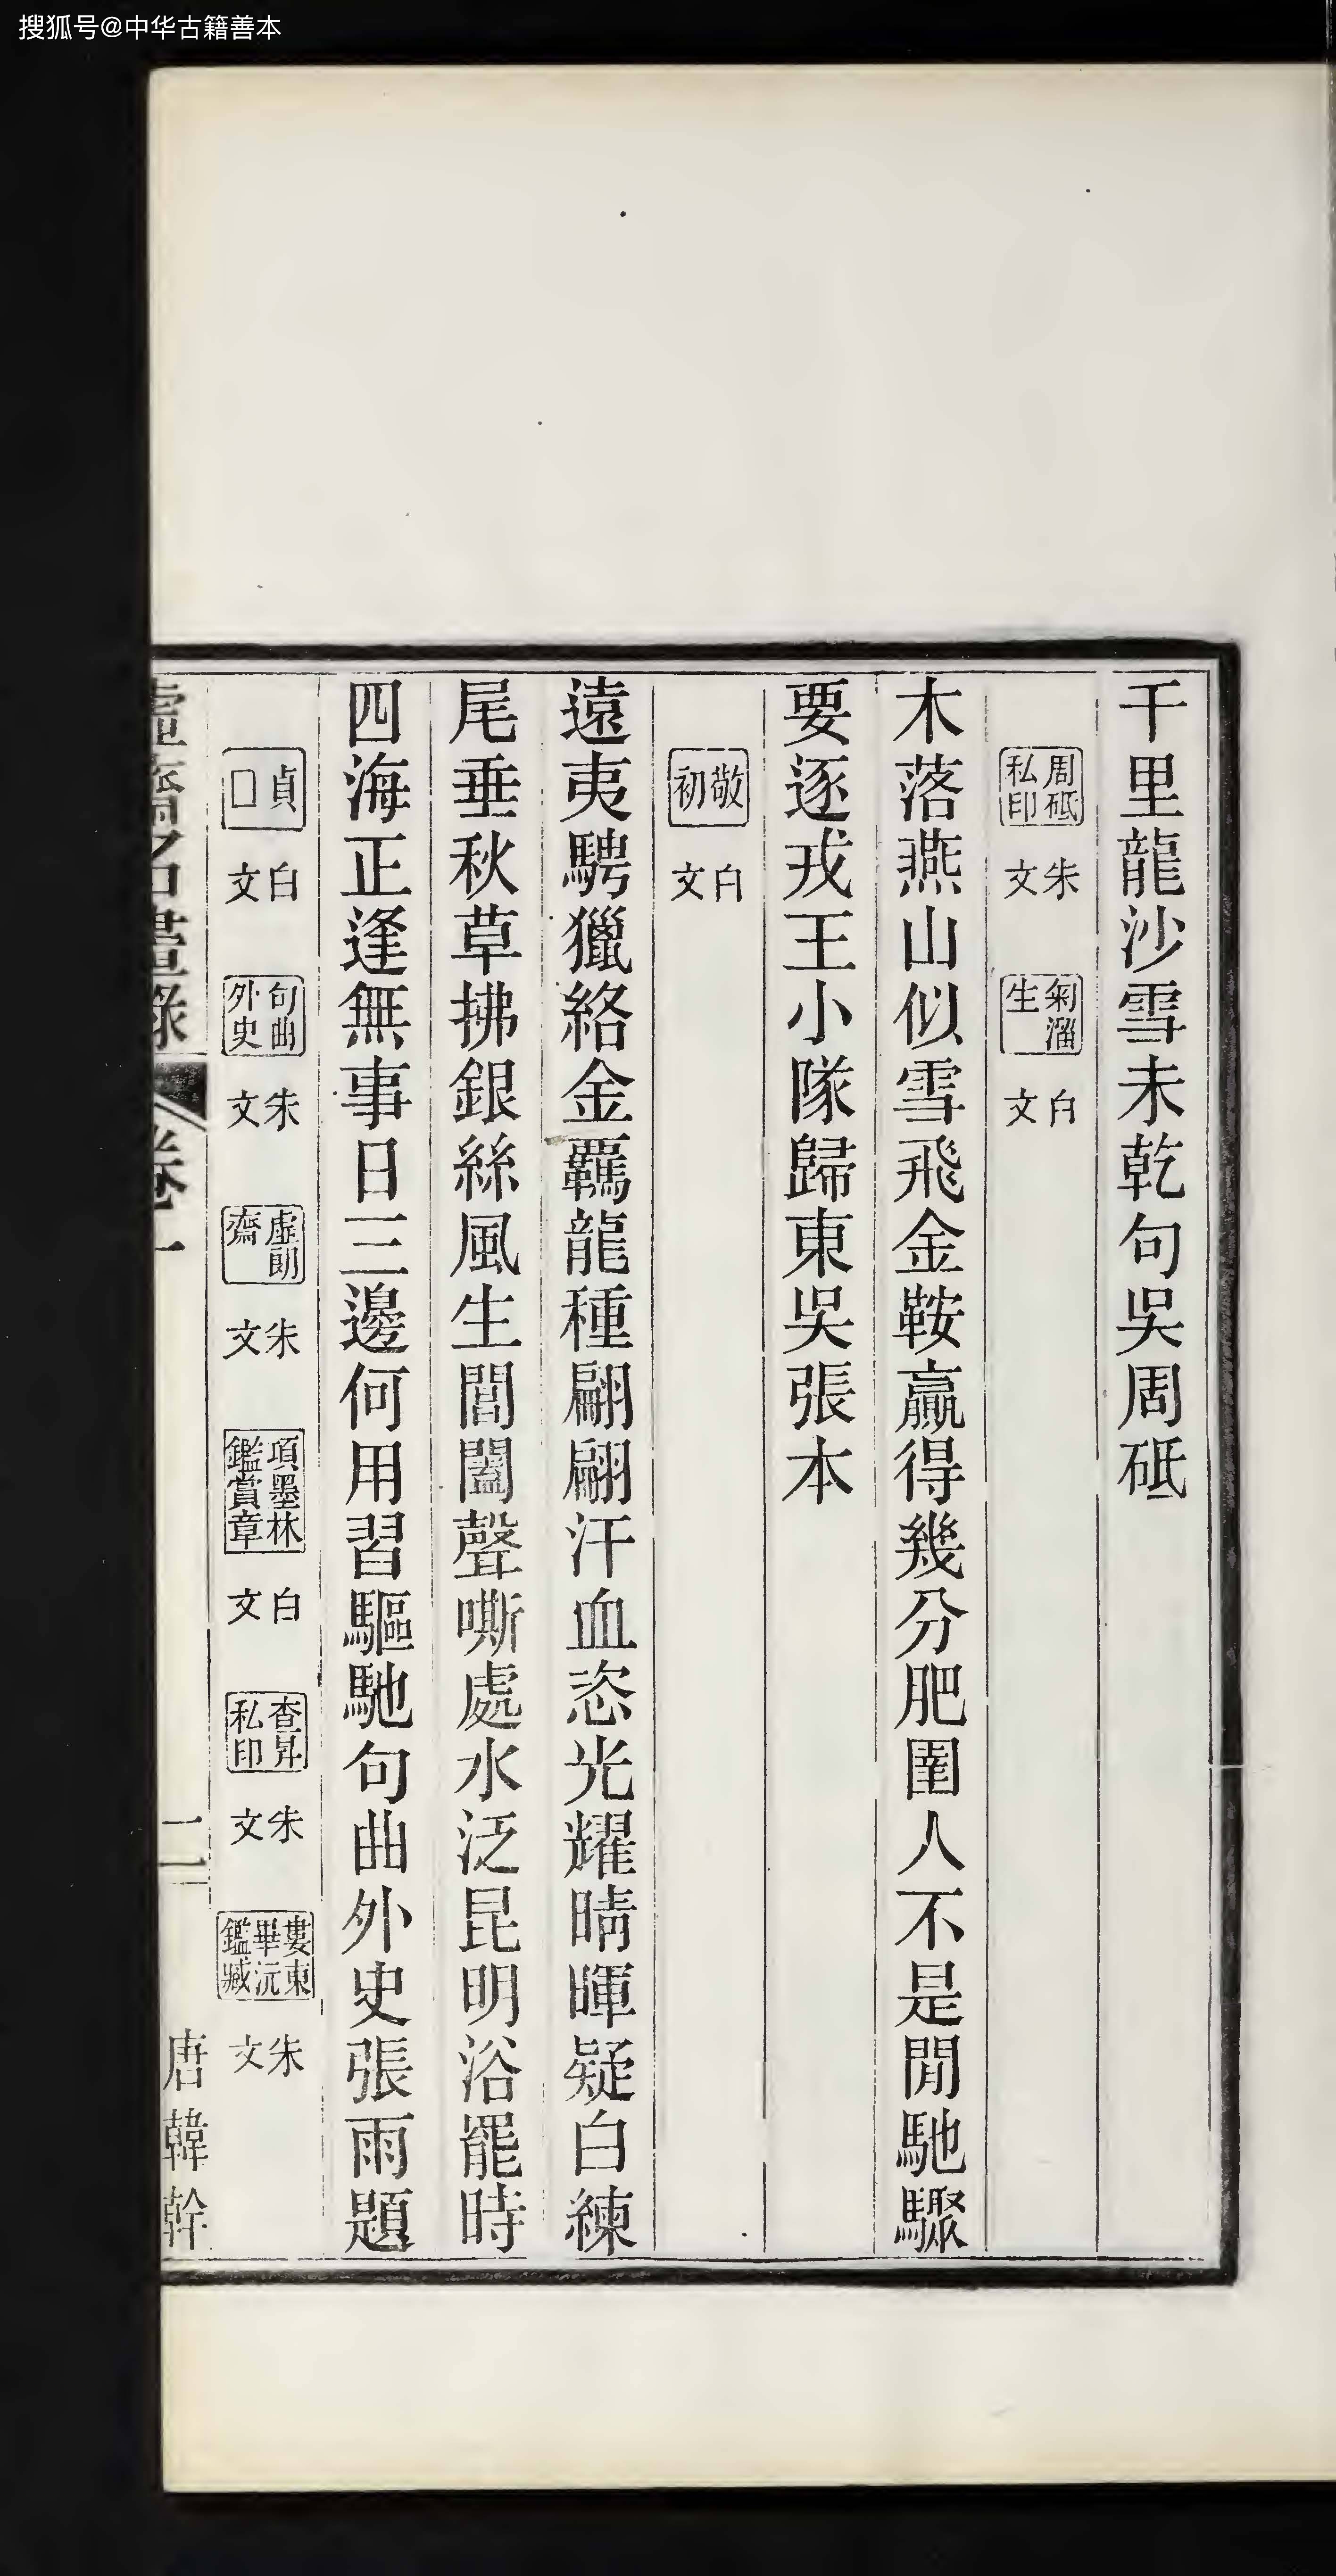 搜狐号@中华古籍善本
千里龍沙雪未乾句吳周砥
周砥私印 朱文 匊溜生 白文
木落燕山似雪飛金鞍贏得幾分肥圉人不是閒馳驟
要逐戎王小隊歸東吳張本
敬初 白文
遠夷騁獵絡金羈龍種翩翩汗血恣光耀晴暉疑白練
尾垂秋草拂銀絲風生閶闔聲嘶處水泛昆明浴罷時
四海正逢無事日三邊何用習驅馳句曲外史張雨題
貞□ 白文 句曲外史 朱文 虛朗齋 朱文 項墨林鑑賞章 白文 查昇私印 朱文 婁東畢沅鑑藏 朱文
虛齋名畫錄 卷一 二 唐韓幹